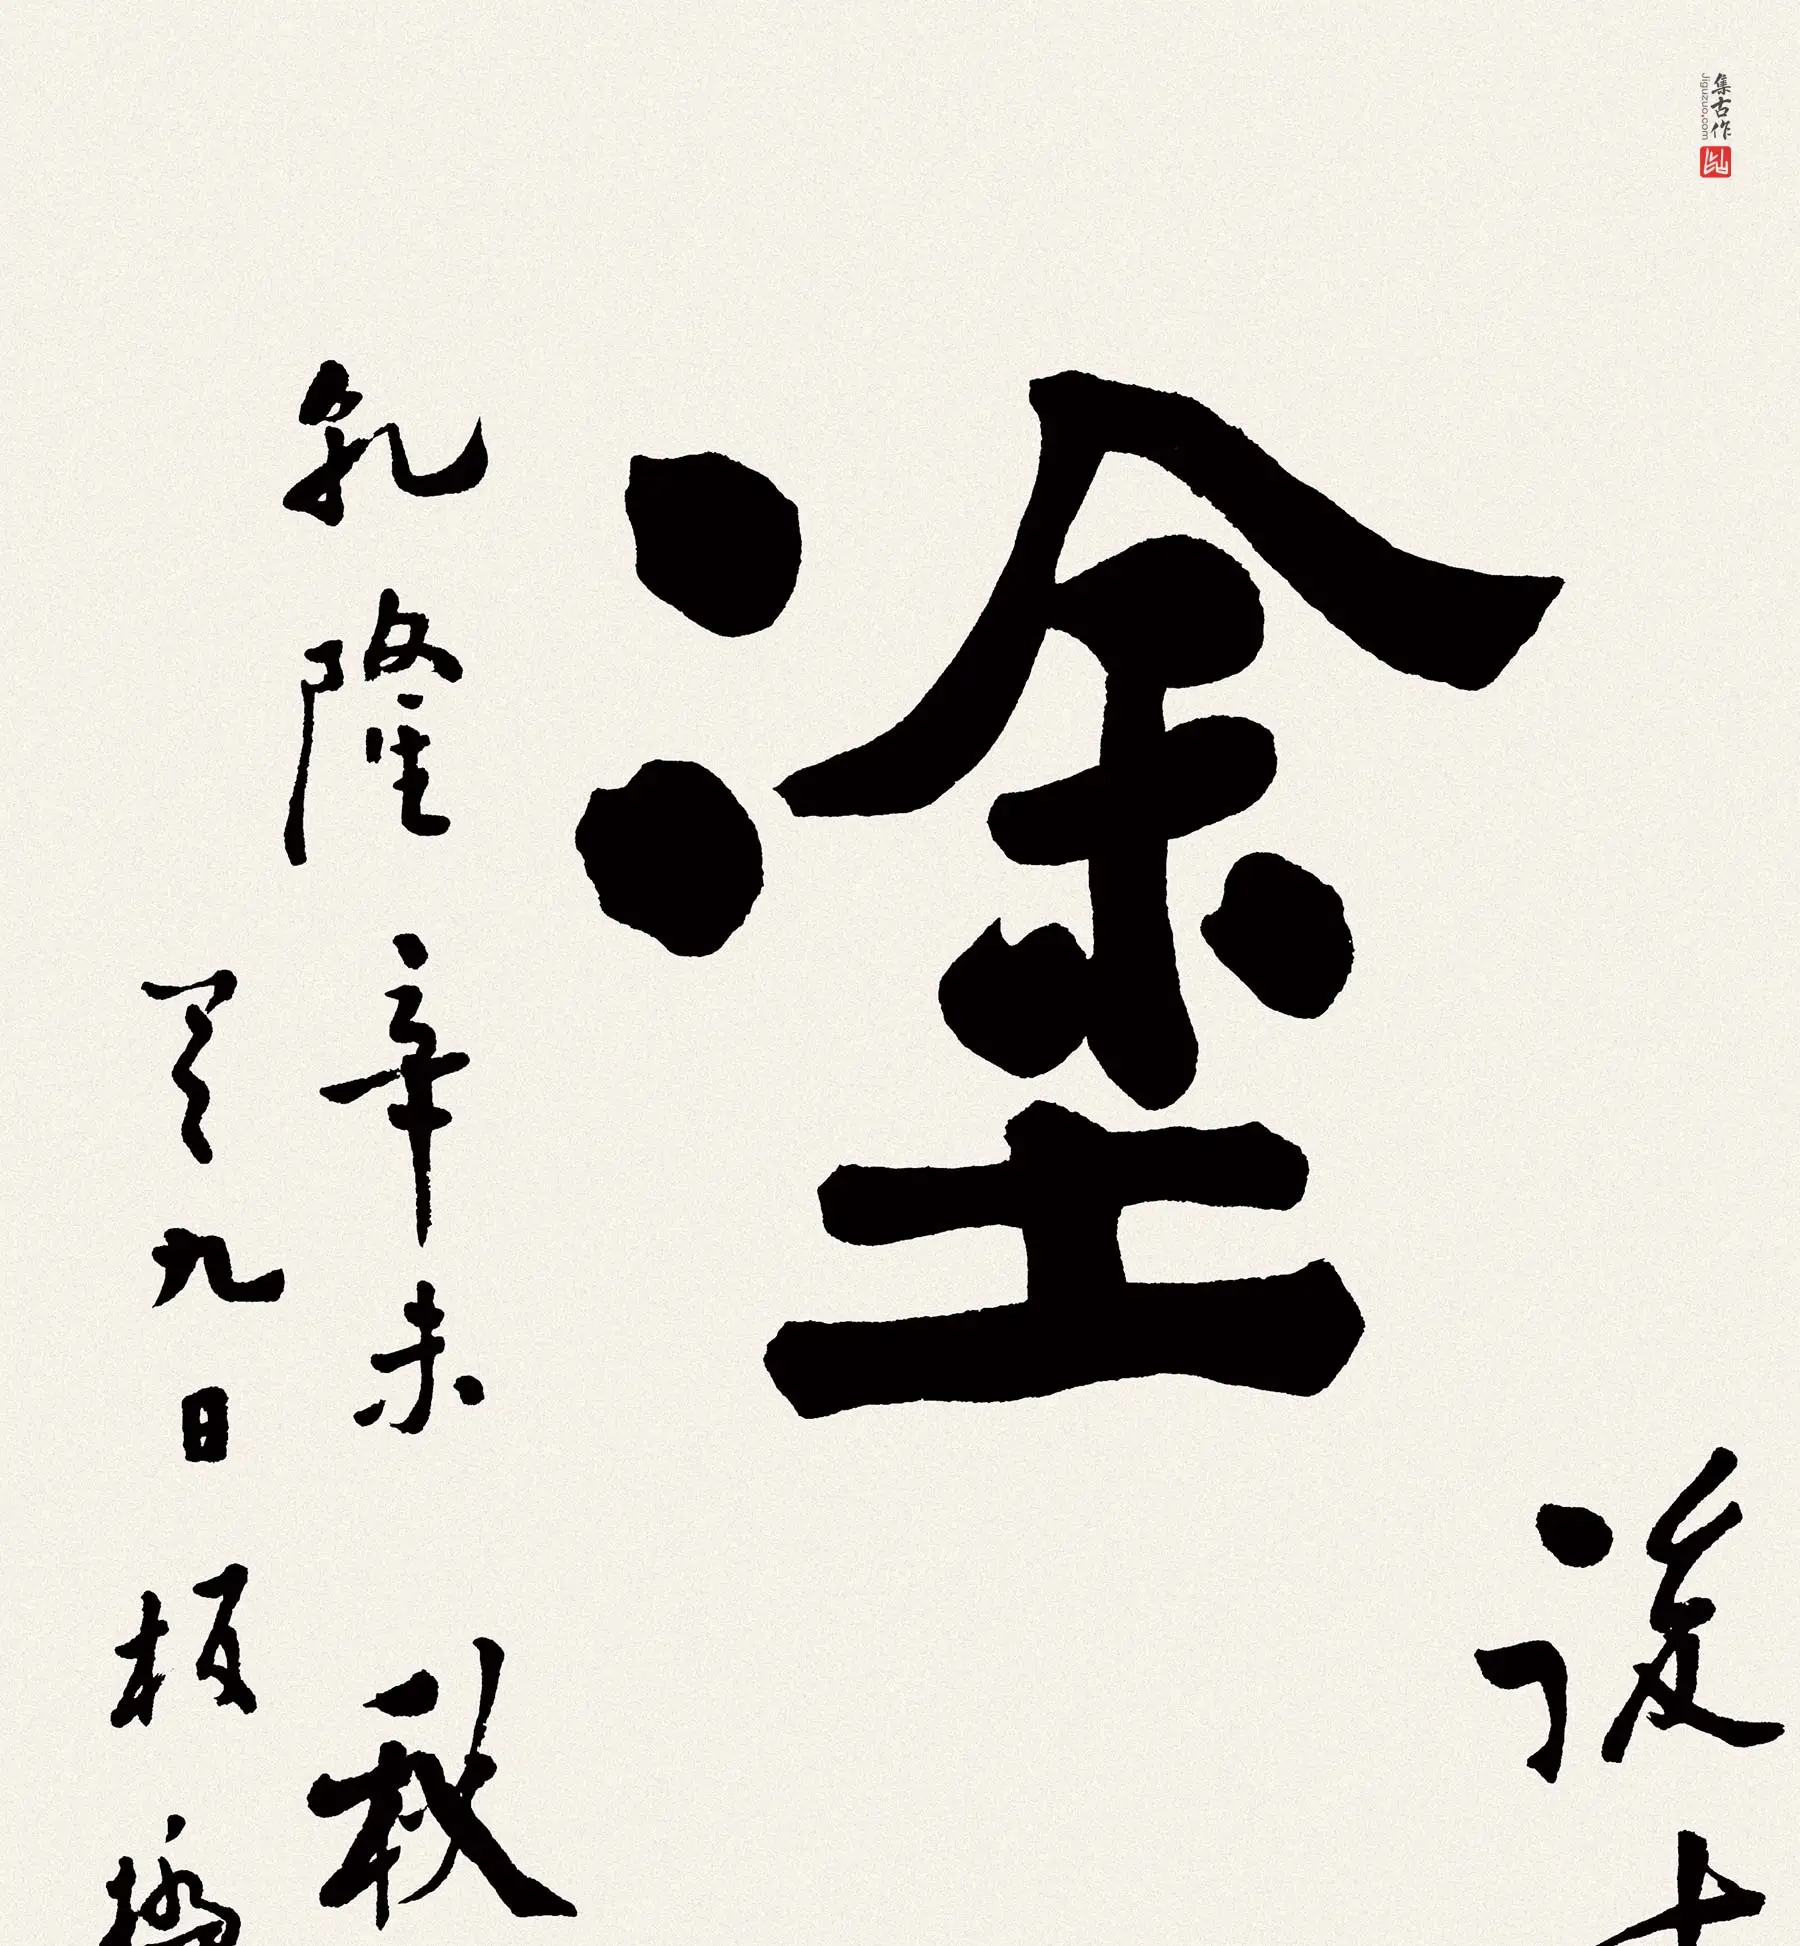 集古作
Jiguzuo.com
後
塗
乾隆辛未秋
九日板橋